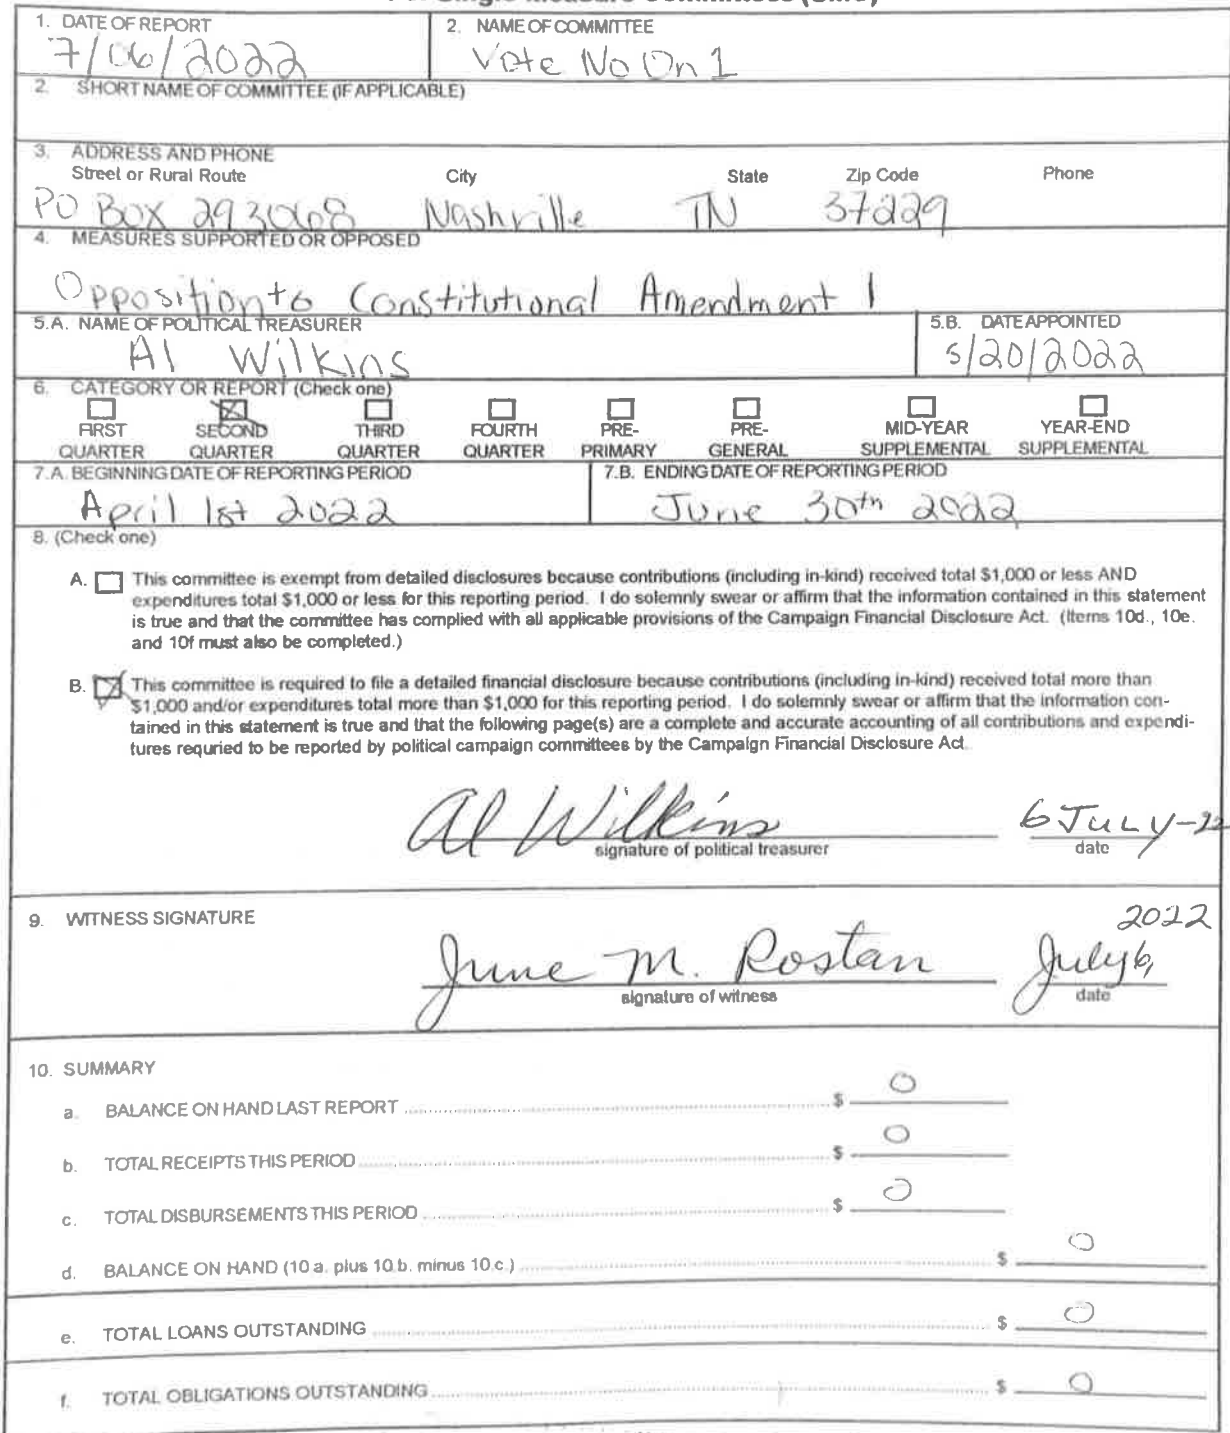 For Single Measure Committees (SMC)
1. DATE OF REPORT
7/06/2022
2. NAME OF COMMITTEE
Vote No On 1
2. SHORT NAME OF COMMITTEE (IF APPLICABLE)
3. ADDRESS AND PHONE
Street or Rural Route City State Zip Code Phone
PO Box 293068 Nashville TN 37229
4. MEASURES SUPPORTED OR OPPOSED
Opposition to Constitutional Amendment 1
5.A. NAME OF POLITICAL TREASURER
Al Wilkins
5.B. DATE APPOINTED
5/20/2022
6. CATEGORY OR REPORT (Check one)
FIRST SECOND THIRD FOURTH PRE- PRE- MID-YEAR YEAR-END
QUARTER QUARTER QUARTER QUARTER PRIMARY GENERAL SUPPLEMENTAL SUPPLEMENTAL
7.A. BEGINNING DATE OF REPORTING PERIOD
April 1st 2022
7.B. ENDING DATE OF REPORTING PERIOD
June 30th 2022
8. (Check one)
A. This committee is exempt from detailed disclosures because contributions (including in-kind) received total $1,000 or less AND
expenditures total $1,000 or less for this reporting period. I do solemnly swear or affirm that the information contained in this statement
is true and that the committee has complied with all applicable provisions of the Campaign Financial Disclosure Act. (Items 10d., 10e.
and 10f must also be completed.)
B. This committee is required to file a detailed financial disclosure because contributions (including in-kind) received total more than
$1,000 and/or expenditures total more than $1,000 for this reporting period. I do solemnly swear or affirm that the information con-
tained in this statement is true and that the following page(s) are a complete and accurate accounting of all contributions and expendi-
tures requried to be reported by political campaign committees by the Campaign Financial Disclosure Act.
Al Wilkins 6 JULY-22
signature of political treasurer date
9. WITNESS SIGNATURE
2022
June M. Rostan July 6,
signature of witness date
10. SUMMARY
a. BALANCE ON HAND LAST REPORT $ 0
b. TOTAL RECEIPTS THIS PERIOD $ 0
c. TOTAL DISBURSEMENTS THIS PERIOD $ 0
d. BALANCE ON HAND (10 a. plus 10.b. minus 10.c.) $ 0
e. TOTAL LOANS OUTSTANDING $ 0
f. TOTAL OBLIGATIONS OUTSTANDING $ 0